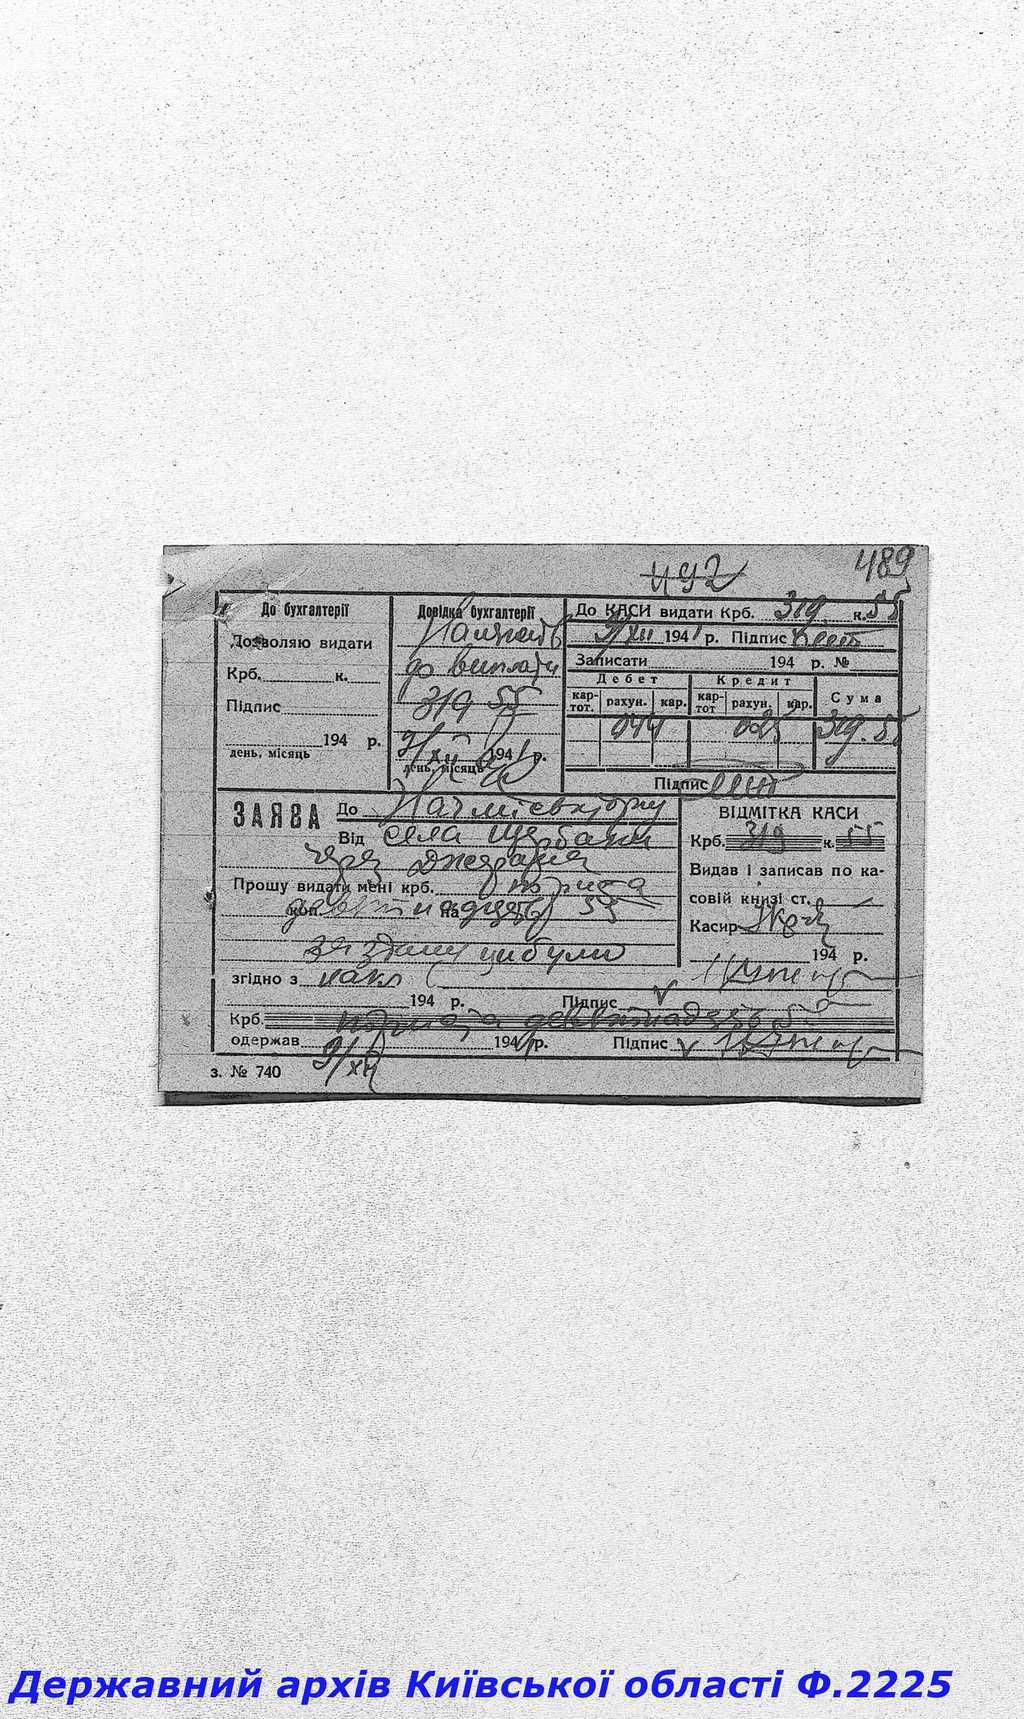 492
489
До бухгалтерії
Дозволяю видати
Крб. к.
Підпис
194 р.
день, місяць
Довідка бухгалтерії
Належить
до виплати
319 55
9/XII 1941 р.
день, місяць
До КАСИ видати Крб. 319 к. 55
9/XII 1941 р. Підпис
Записати 194 р. №
Дебет Кредит Сума
кар-тот. рахун. кар. кар-тот рахун. кар.
044 025 319.55
Підпис
ЗАЯВА До
Від села Щербаки
через
Прошу видати мені крб. триста
коп. девятнадцять на 55
за здану цибулю
згідно з накл
194 р. Підпис
Крб. триста девятнадцять 55
одержав 9/XII 1941 р. Підпис
ВІДМІТКА КАСИ
Крб. 319 к. 55
Видав і записав по ка-
совій книзі ст.
Касир
194 р.
з. № 740
Державний архів Київської області Ф.2225